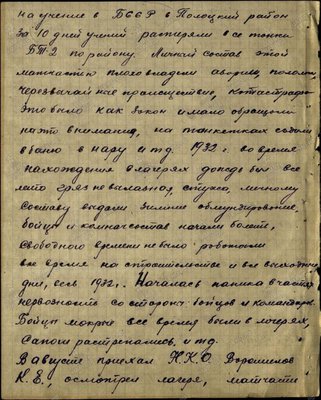 на учение в БССР в Полоцкий район
за 10 дней учений растеряли все танки
БТ-2 по району. Личный состав этой
матчастью плохо владели аварии, поломки,
черезвычайное происшествие, катастрофы
это было как закон и мало обращали
на это внимания, на танкетках ездили
в баню в наряд и т.д. 1932 г. во время
нахождения в лагерях дождь был все
лето грязь невылазная, стужа, личному
составу выдали зимние обмундирование,
бойцы и комначсостав начали болеть,
свободного времени не было работали
все время на строительстве и все выходные
дни, весь 1932 г. Началась паника в частях
нервозность со стороны бойцов и командиров.
Бойцы мокрые все время были в лагерях,
сапоги растрепались, и т.д.
В августе приехал Н.К.О. Ворошилов
К.Е., осмотрел лагеря, матчасть